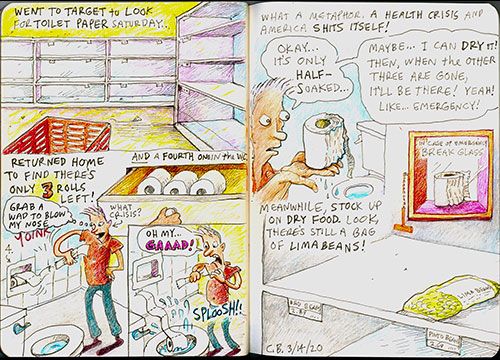 WENT TO TARGET TO LOOK
FOR TOILET PAPER SATURDAY...
RETURNED HOME
TO FIND THERE'S
ONLY 3 ROLLS
LEFT!
AND A FOURTH ONE IN THE W.C.
GRAB A
WAD TO BLOW
MY NOSE
YOINK
WHAT
CRISIS?
OH MY...
GAAAD!
SPLOOSH!!
WHAT A METAPHOR, A HEALTH CRISIS AND
AMERICA SHITS ITSELF!
OKAY...
IT'S ONLY
HALF-
SOAKED...
MAYBE... I CAN DRY IT!
THEN, WHEN THE OTHER
THREE ARE GONE,
IT'LL BE THERE! YEAH!
LIKE... EMERGENCY!
IN CASE OF EMERGENCY
BREAK GLASS
MEANWHILE, STOCK UP
ON DRY FOOD. LOOK,
THERE'S STILL A BAG
OF LIMA BEANS!
LIMA BEANS
RED BEANS
PINTO BEANS
C.B. 3/14/20